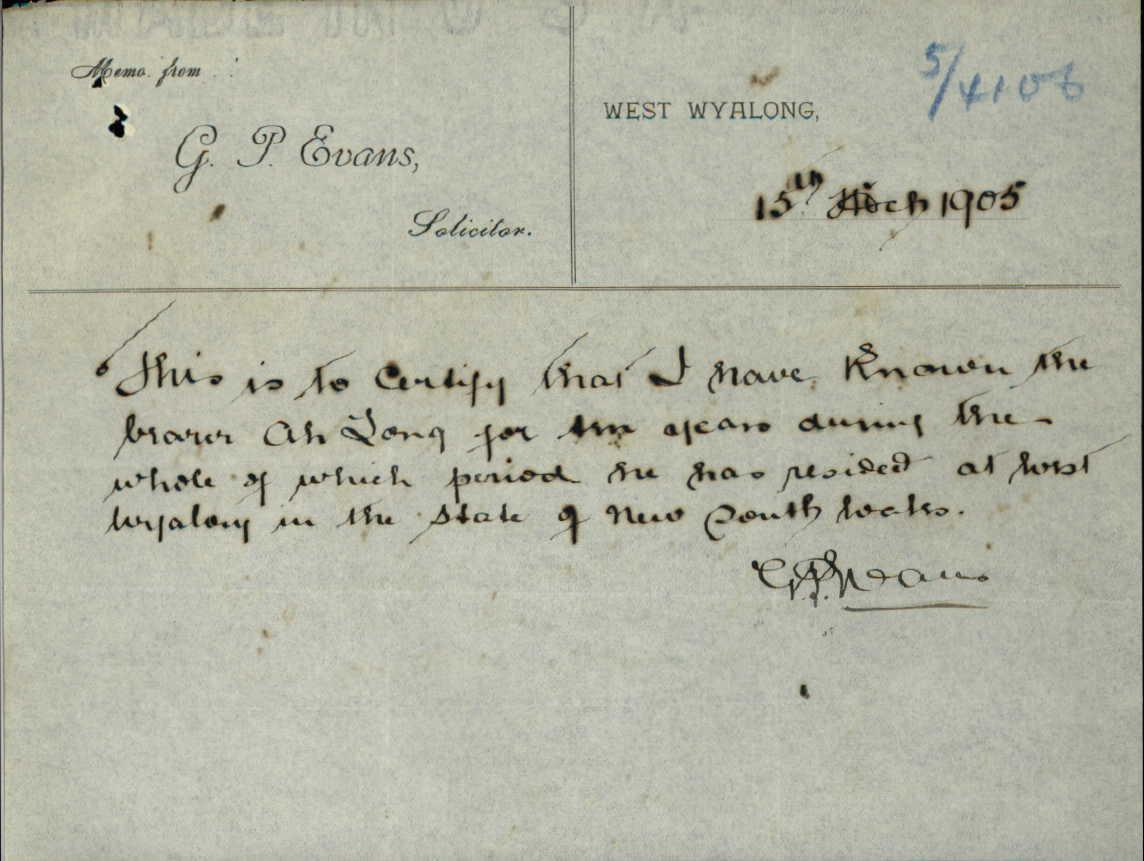 Memo. from
G. P. Evans,
Solicitor.
WEST WYALONG,
5/4106
15th March 1905
This is to Certify that I have Known the
bearer Ah Long for ten years during the
whole of which period he has resided at West
Wyalong in the State of New South Wales.
G.P. Evans